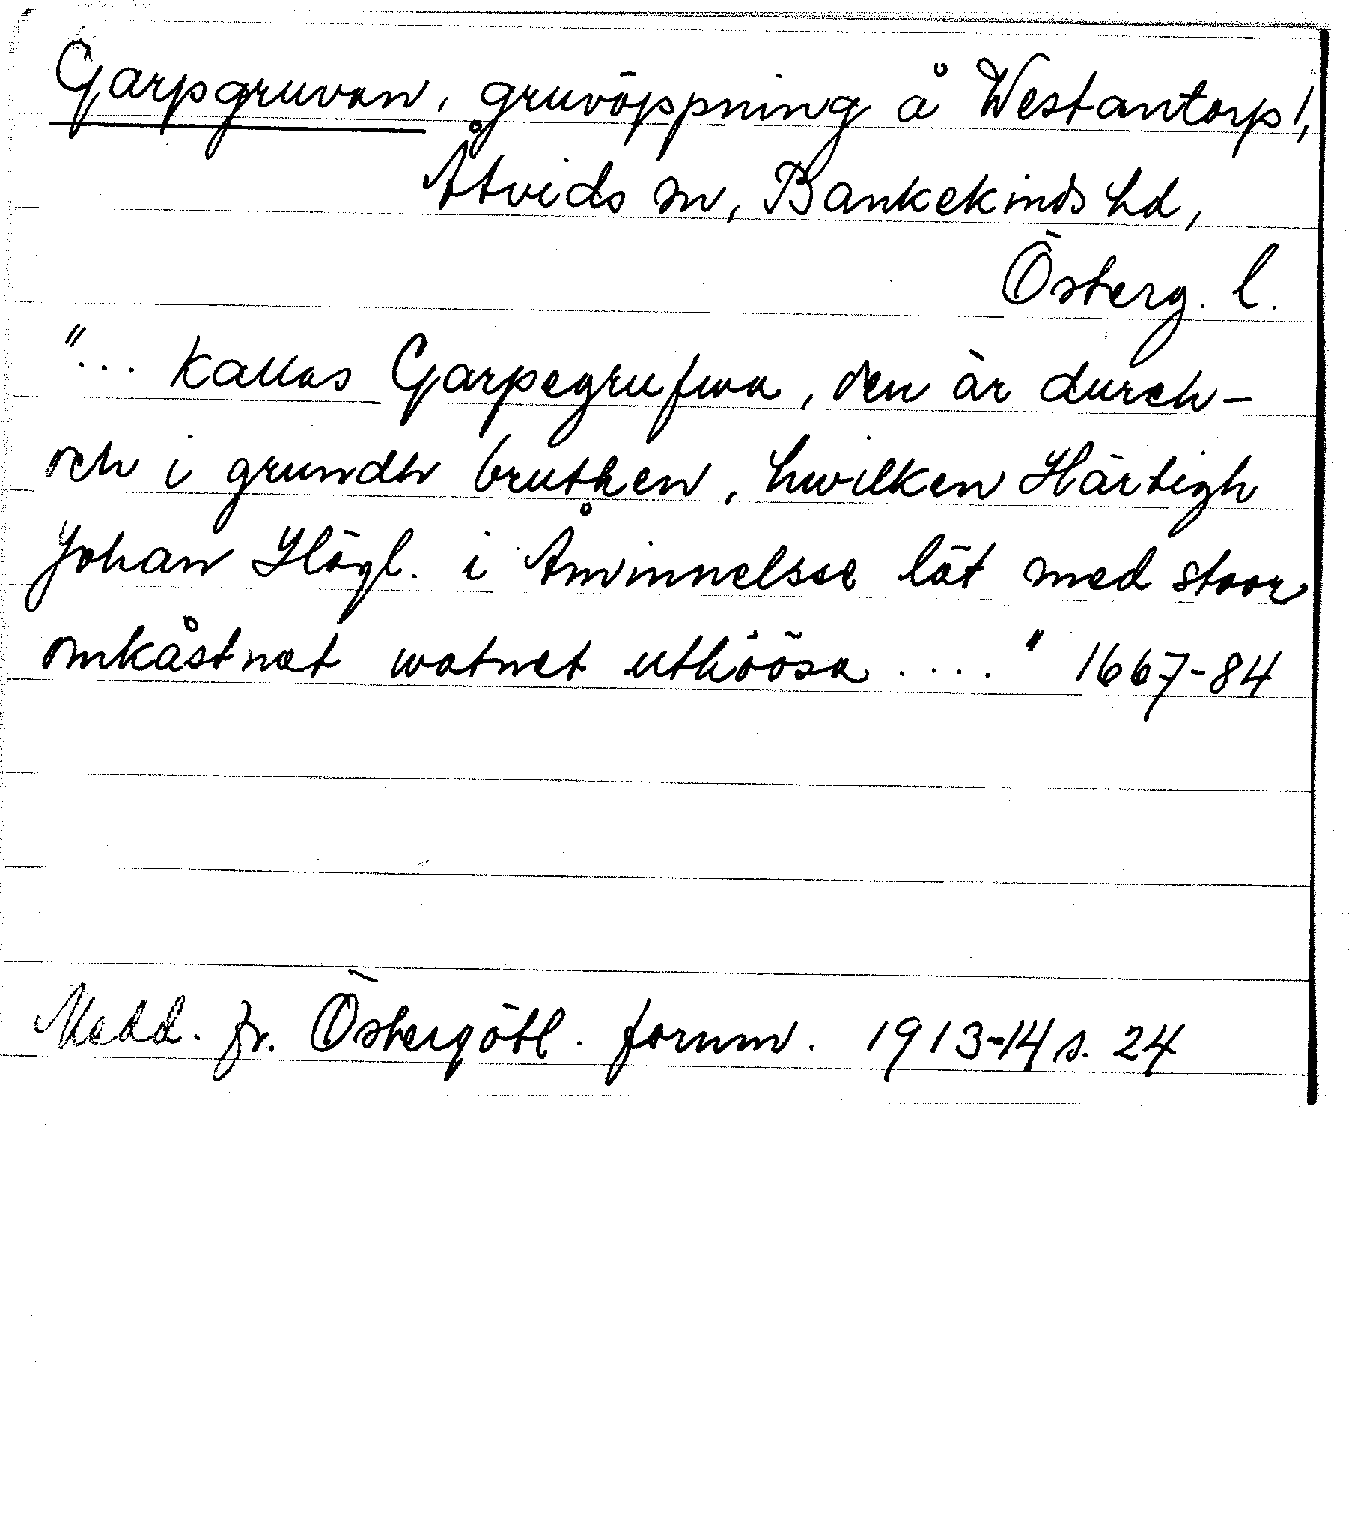 Garpgruvan, gruvöppning å Westantorp!,
Åtvids sn, Bankekinds hd,
Österg. l.
"... kallas Garpegrufwa, den är durch-
och i grundh bruthen, hwilken Härtigh
Johan Högl. i Åminnelsse lät med stoor
omkåstnat watnet uthöösa ...." 1667-84
Medd. fr. Östergötl. fornm. 1913-14 s. 24